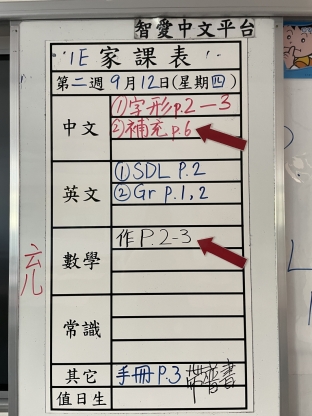 智愛中文平台
1E 家課表
第二週 9月12日(星期四)
中文
①字形 p.2—3
②補充 p.6
英文
①SDL P.2
②Gr P.1,2
數學
作 P.2-3
常識
其它 手冊 P.3 帶普書
值日生